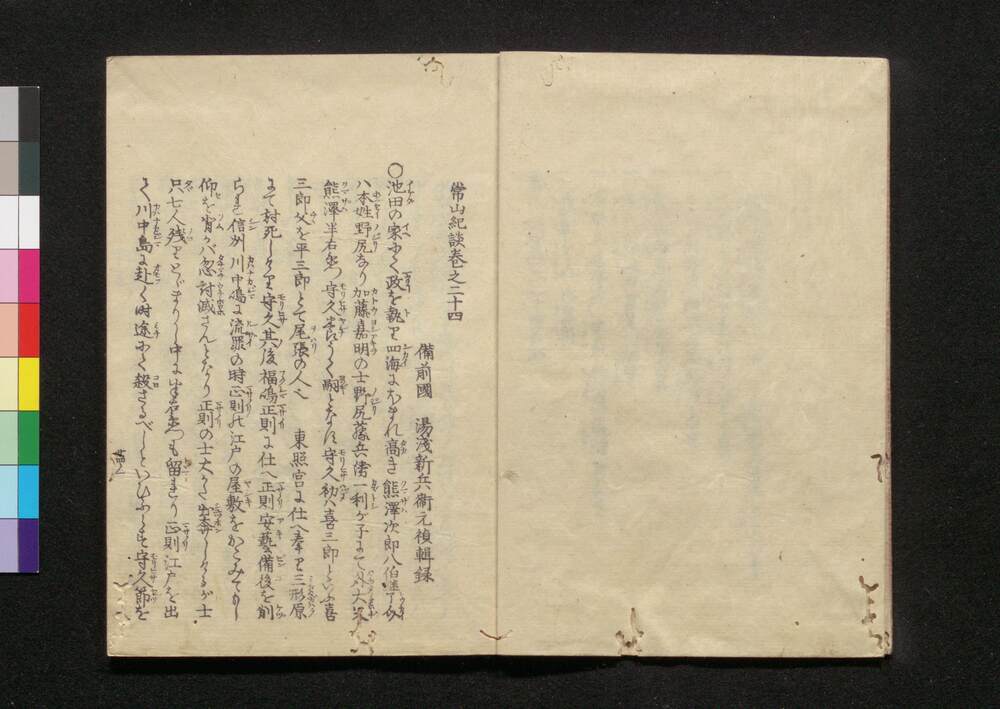 常山紀談巻之二十四
備前國 湯淺新兵衛元禎輯録
○池田の家にて政を執り四海にほまれ高き熊澤次郎八伯継
ハ本姓野尻なり加藤嘉明の士野尻藤兵衛一利が子にて外大父
熊澤半右衛門守久養うて嗣となす守久初ハ喜三郎といふ喜
三郎父を平三郎とて尾張の人 東照宮に仕へ奉り三形原
にて討死しけり守久其後福嶋正則に仕へ正則安藝備後を削
られ信州川中嶋に流罪の時正則の江戸の屋敷をかこみてもし
仰を背かバ忽討滅さんとなり正則の士大かた出奔しけるが士
只七人残りとゞまりし中に半右衛門も留まれり正則江戸を出
て川中島に赴く時途にて殺さるべしといひふらす守久節を